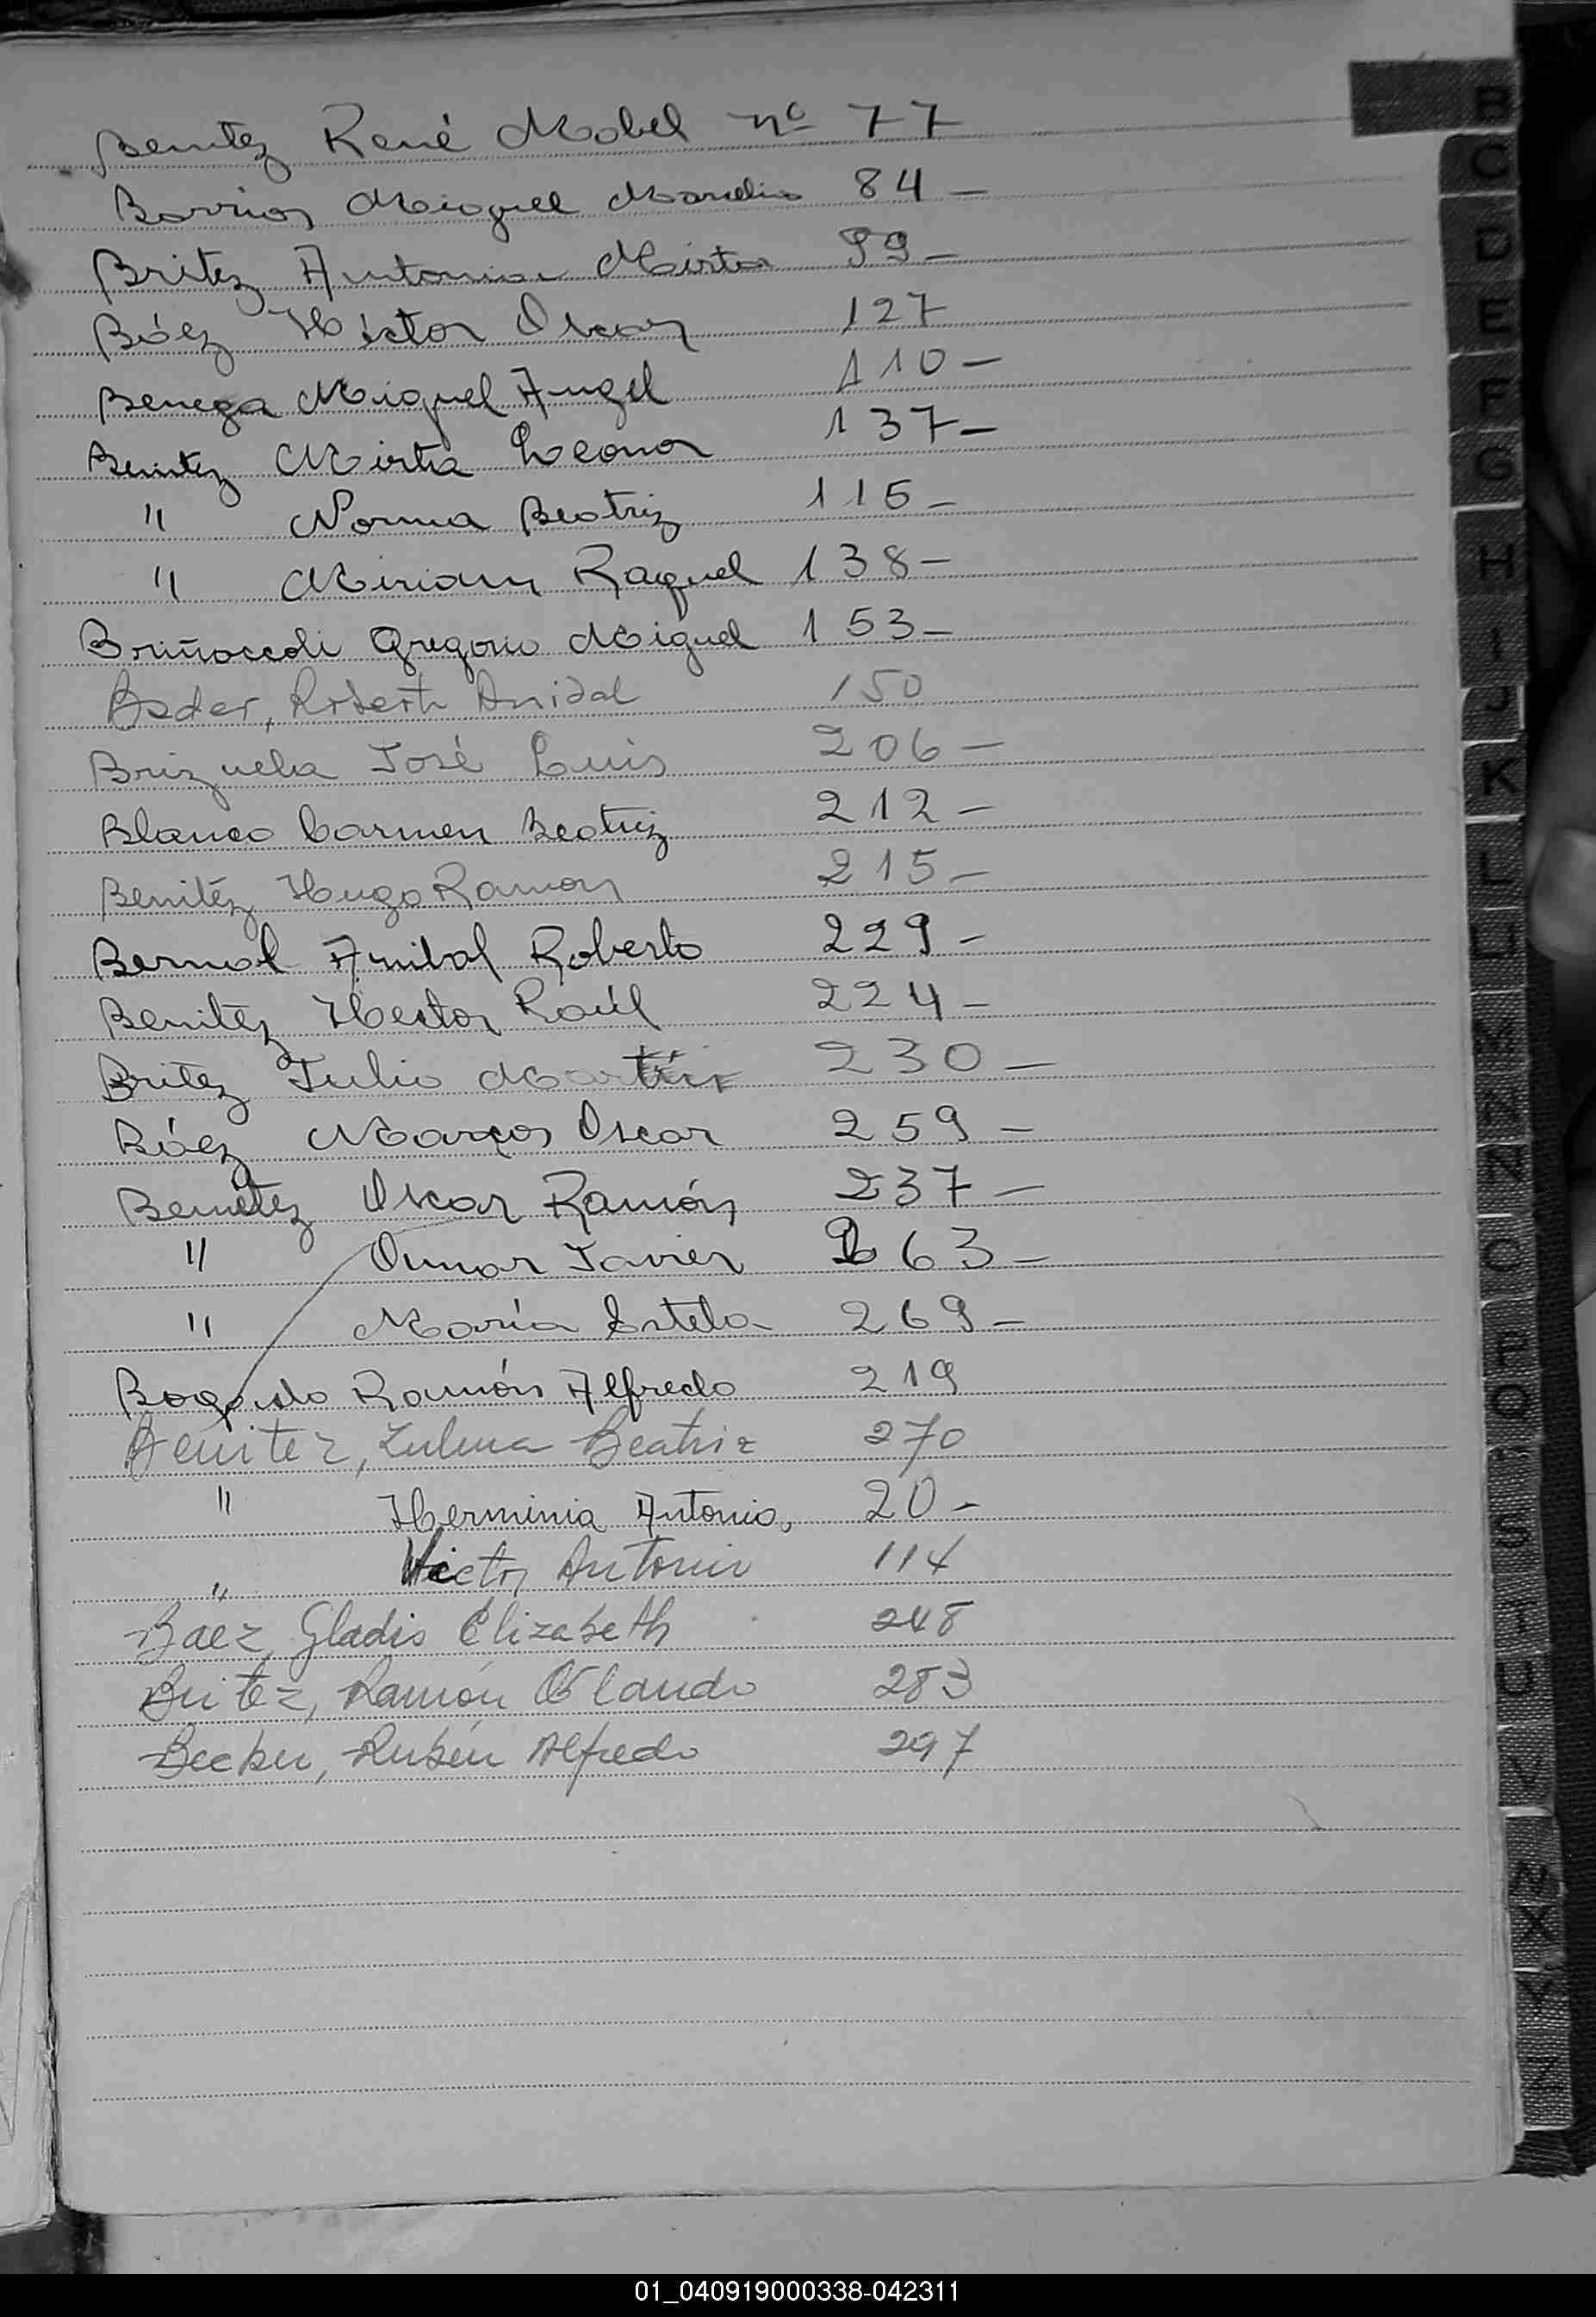 Benitez René Mabel nº 77
Barrios Miguel Marcelino 84 -
Britez Antonia Mirta 99 -
Báez Héctor Oscar 127
Benega Miguel Angel 110 -
Benitez Mirta Leonor 137 -
" Norma Beatriz 115 -
" Miriam Raquel 138 -
Briñoccoli Gregorio Miguel 153 -
Bader, Roberto Anibal 150
Brizuela José Luis 206 -
Blanco Carmen Beatriz 212 -
Benitéz Hugo Ramon 215 -
Bernal Anibal Roberto 229 -
Benitéz Hector Raúl 224 -
Britez Julio Martín 230 -
Báez Marcos Oscar 259 -
Benitez Oscar Ramón 237 -
" Omar Javier 263 -
" María Estela 269 -
Bogado Ramón Alfredo 219
Benitez, Zulma Beatriz 270
" Herminia Antonia 20 -
" Victor Antonio 114
Báez, Gladis Elizabeth 248
Britez, Ramón Orlando 283
Becker, Rubén Alfredo 297
B
C
D
E
F
G
H
I
J
K
L
LL
M
N
Ñ
O
P
Q
R
S
T
U
V
W
X
Y
Z
01_040919000338-042311